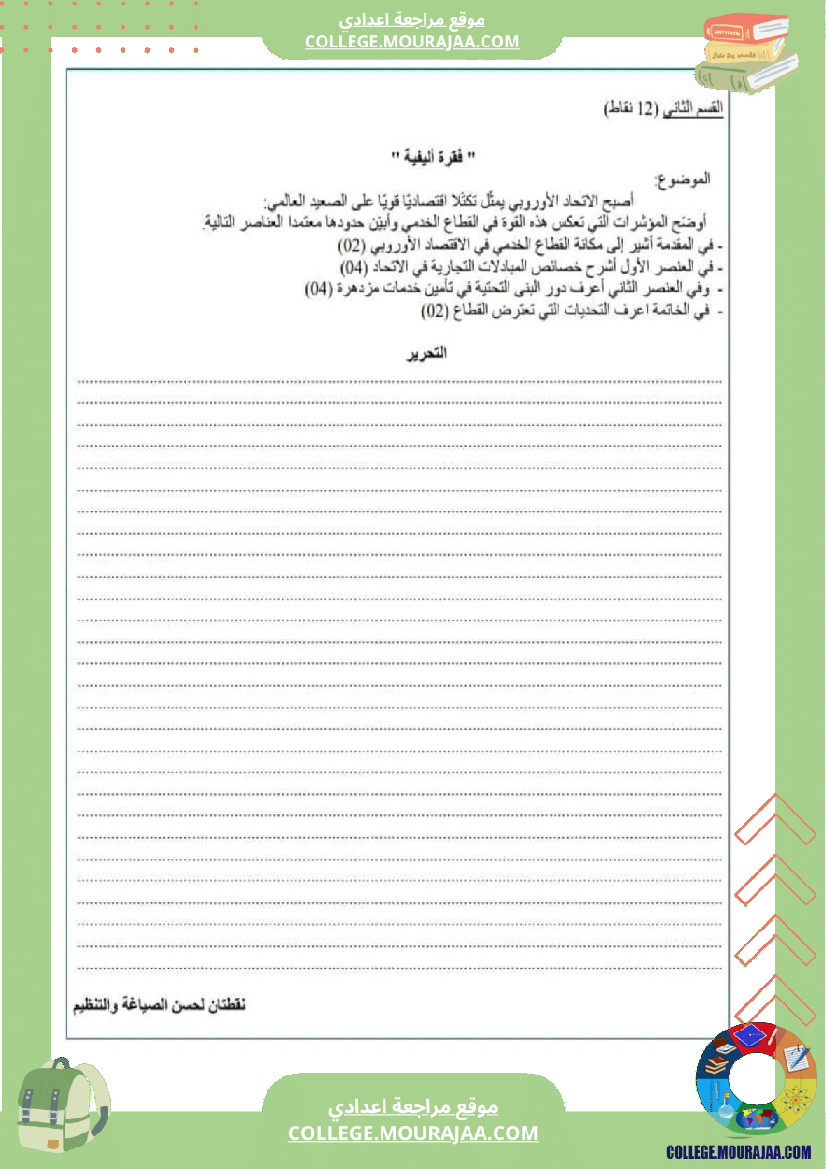 موقع مراجعة اعدادي
COLLEGE.MOURAJAA.COM
القسم الثاني (12 نقاط)
" فقرة اليفية "
الموضوع:
أصبح الاتحاد الأوروبي يمثّل تكتّلا اقتصاديّا قويّا على الصعيد العالمي:
أوضح المؤشرات التي تعكس هذه القوة في القطاع الخدمي وأبيّن حدودها معتمدا العناصر التالية.
- في المقدمة أشير إلى مكانة القطاع الخدمي في الاقتصاد الأوروبي (02)
- في العنصر الأول أشرح خصائص المبادلات التجارية في الاتحاد (04)
- وفي العنصر الثاني أعرف دور البنى التحتية في تأمين خدمات مزدهرة (04)
- في الخاتمة اعرف التحديات التي تعترض القطاع (02)
التحرير
نقطتان لحسن الصياغة والتنظيم
موقع مراجعة اعدادي
COLLEGE.MOURAJAA.COM
COLLEGE.MOURAJAA.COM